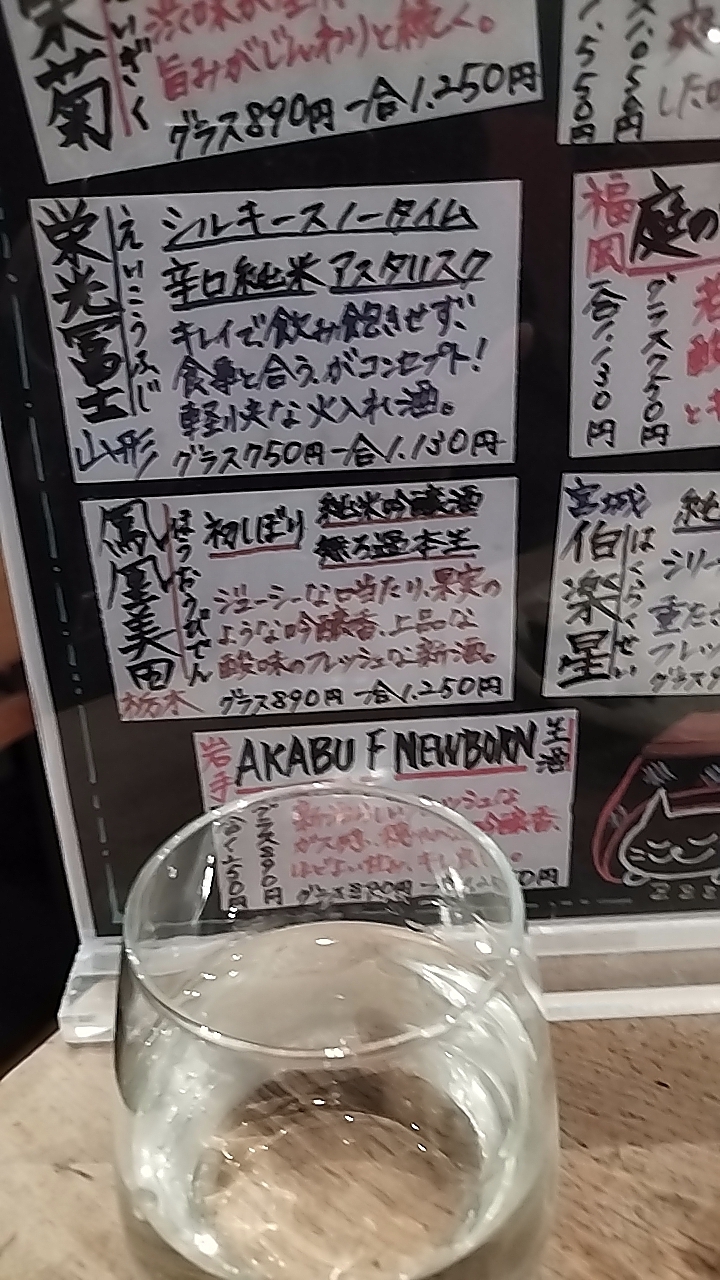 栄菊
いざく
旨みがじんわりと続く。
グラス890円 一合1.250円
栄光冨士
えいこうふじ
山形
シルキースノータイム
辛口純米 アスタリスク
キレイで飲み飽きせず、
食事と合う、がコンセプト!
軽快な火入れ酒。
グラス750円 一合1.130円
鳳凰美田
ほうおうびでん
栃木
初しぼり
純米吟醸酒
無ろ過本生
ジューシーな口当たり、果実の
ような吟醸香、上品な
酸味のフレッシュな新酒。
グラス890円 一合1.250円
岩手
AKABU F NEWBORN
生酒
グラス890円
福岡
庭の
グラス750円
一合1.130円
宮城
伯楽星
はくらくせい
純
シリー
重た
フレッ
グラス